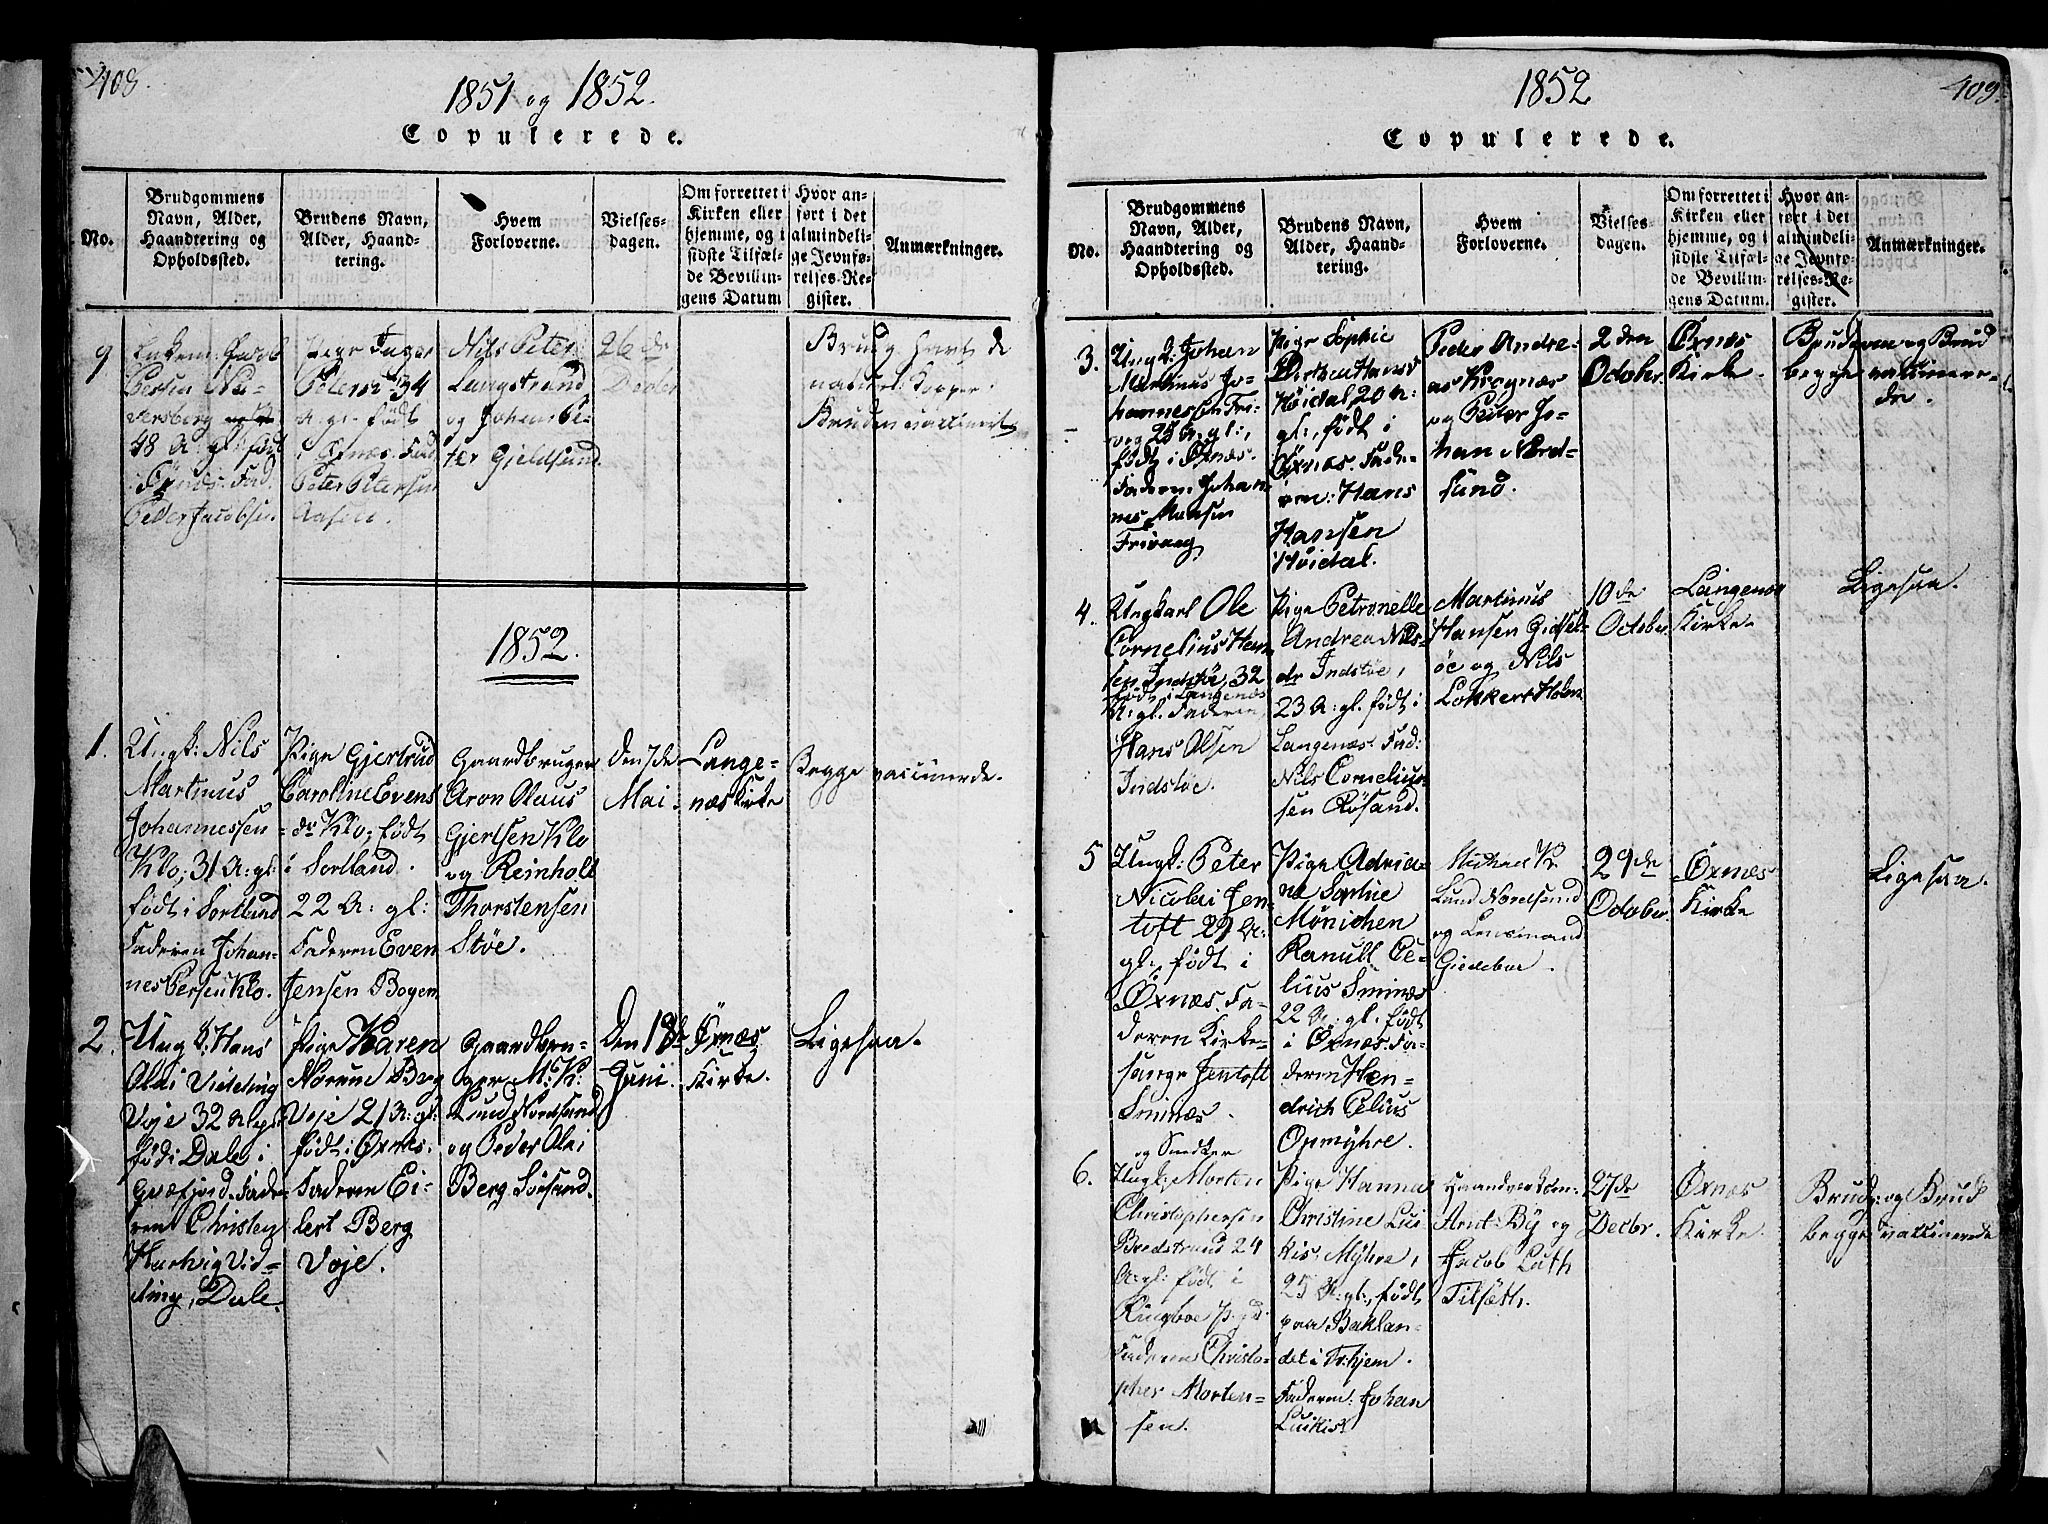 408.
1851 og 1852.
Copulerede.
No.
Brudgommens
Navn, Alder,
Haandtering og
Opholdssted.
Brudens Navn,
Alder, Haand-
tering.
Hvem
Forloverne.
Vielses-
dagen.
Om forrettet i
Kirken eller
hjemme, og i
sidste Tilfæl-
de Bevillin-
gens Datum
Hvor an-
ført i det
almindeli-
ge Jevnfø-
relses-Re-
gister.
Anmærkninger.
9
Enkem: Jacob
Persen
48 A: gl: født
Fad.
Peder Jacobsen
Pige Inger
Petersd. 34
A. gl. født
i Øxnæs. Fad
Peter Petersen
Nils Peter
Langstrand
og Johan Pe-
ter Gjeldsund
26 de
Decbr
Brudg havt de
naturl: Kopper
Bruden vaccineret
1852.
1.
Ungk: Nils
Martinus
Johannessen
Klo, 31 A: gl:
født i Sortland
Faderen Johan-
nes Persen Klo.
Pige Gjertrud
Caroline Evens
dr Klo, født
i Sortland.
22 A: gl:
Faderen Even
Jensen Bogen
Gaardbruger
Aron Olaus
Gjertsen Klo
og Reinholt
Thorstensen
Støe.
Den 7de
Mai.
Lange-
næs Kirke
Begge vaccinerde.
2.
Ungk: Hans
Olai Videling
Voje 32 A: gl
født i Dale i
Faderen Christen
Hartvig Vid-
ling, Dale.
Pige Karen
Norum Berg
Voje 21 A: gl:
født i Øxnæs.
Faderen Ei-
lert Berg
Voje.
Gaardbru-
ger M: K:
Lund Nordsand
og Peder Olai
Berg Sørsand.
Den 18de
Juni.
Øxnæs
Kirke.
Ligesaa.
1852
409.
Copulerede.
No.
Brudgommens
Navn, Alder,
Haandtering og
Opholdssted.
Brudens Navn,
Alder, Haand-
tering.
Hvem
Forloverne.
Vielses-
dagen.
Om forrettet i
Kirken eller
hjemme, og i
sidste Tilfæl-
de Bevillin-
gens Datum.
Hvor an-
ført i det
almindeli-
ge Jevnfø-
relses-Re-
gister.
Anmærkninger.
3.
Ungk: Johan
Martinus Jo-
hannessen Fri-
vog 25 A: gl:,
født i Øxnæs.
Faderen: Johan-
nes Monsen
Frivaag
Pige Sophie
Birthe Hansd
Høidal 20 A:
gl:, født i
Øxnæs. Fade-
ren: Hans
Hansen
Høidal.
Peder Andre-
as Kragnæs
og Peter Jo-
han Nord-
sand.
2 den
Octobr.
Øxnæs
Kirke.
Brudgom og Brud
begge vaccinere-
de.
4.
Ungkarl Ole
Cornelius Han-
sen Indstøe, 32
født i Langenæs
A: gl. Faderen
Hans Olsen
Indstøe.
Pige Petronelle
Andrea Nils-
dr Indstøe,
23 A: gl. født i
Langenæs. Fad:
Nils Cornelius-
sen Røsand.
Martinus
Hansen Gidsel-
øe og Nils
Lokkert Holm
10 de
October
Langenæs
Kirke.
Ligesaa.
5
Ungk: Peter
Nicolai Jen-
toft 29 A:
gl:, født i
Øxnæs. Fa-
deren Kirke-
sanger Jentoft
Smines.
Pige Adria-
ne Sophie
Mönichen
Ranull Ce-
lius Smines
22 A: gl. født
i Øxnæs. Fa-
deren Hen-
drich Celius
Opmyhre.
Michael Kr
Lund Nordsand
og Lensmand
Giedeboe.
29de
October
Øxnæs
Kirke
Ligesaa.
6.
og Snedker
Ungk: Morten
Christophersen
Bredstrand 24
A: gl: født i
Faderen Christo-
pher Morten-
sen.
Pige Hanna
Christine Lui-
kis, Myhre,
25 A: gl:, født
paa Baklan-
det i Tr:hjem.
Faderen: Johan
Luikis
Arnt By og
Jacob Luth
Tilseth.
27de
Decbr.
Øxnæs
Kirke.
Brudg: og Brud
begge vaccinerede